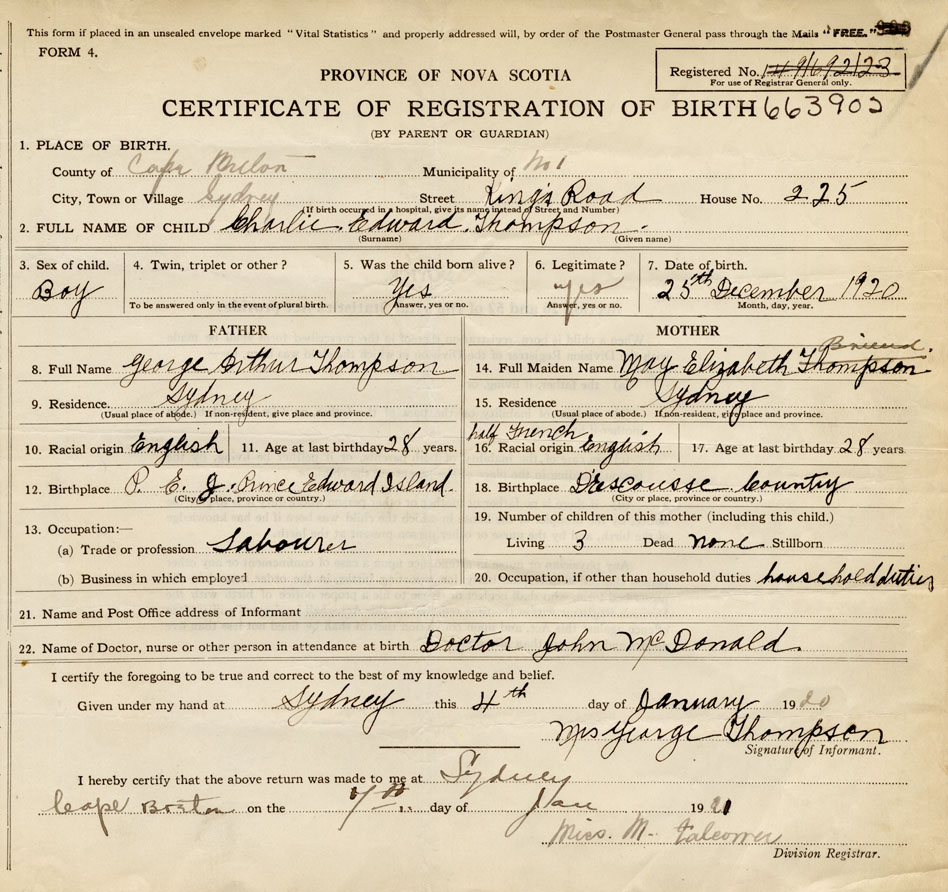 This form if placed in an unsealed envelope marked "Vital Statistics" and properly addressed will, by order of the Postmaster General pass through the Mails "FREE."
FORM 4.
PROVINCE OF NOVA SCOTIA
Registered No.
For use of Registrar General only.
CERTIFICATE OF REGISTRATION OF BIRTH 663903
(BY PARENT OR GUARDIAN)
1. PLACE OF BIRTH.
County of Cape Breton Municipality of No 1
City, Town or Village Sydney Street King's Road House No. 225
(If birth occurred in a hospital, give its name instead of Street and Number)
2. FULL NAME OF CHILD Charlie Edward Thompson.
(Surname) (Given name)
3. Sex of child. 4. Twin, triplet or other? 5. Was the child born alive? 6. Legitimate? 7. Date of birth.
Boy Yes yes 25th December 1920
To be answered only in the event of plural birth. Answer, yes or no. Answer, yes or no. Month, day, year.
FATHER MOTHER
8. Full Name George Arthur Thompson 14. Full Maiden Name May Elizabeth Thompson
9. Residence. Sydney 15. Residence Sydney
(Usual place of abode.) If non-resident, give place and province. (Usual place of abode.) If non-resident, give place and province.
half French
10. Racial origin English 11. Age at last birthday 28 years. 16. Racial origin English 17. Age at last birthday 28 years
12. Birthplace P. E. I. Prince Edward Island. 18. Birthplace D'escousse Country
(City or place, province or country.) (City or place, province or country.)
13. Occupation:— 19. Number of children of this mother (including this child.)
(a) Trade or profession Labourer Living 3 Dead none Stillborn
(b) Business in which employed 20. Occupation, if other than household duties household duties
21. Name and Post Office address of Informant
22. Name of Doctor, nurse or other person in attendance at birth Doctor John McDonald.
I certify the foregoing to be true and correct to the best of my knowledge and belief.
Given under my hand at Sydney this 4th day of January 1920
Mrs George Thompson
Signature of Informant.
I hereby certify that the above return was made to me at Sydney
Cape Breton on the 7th day of Jan 1921
Miss. M.
Division Registrar.